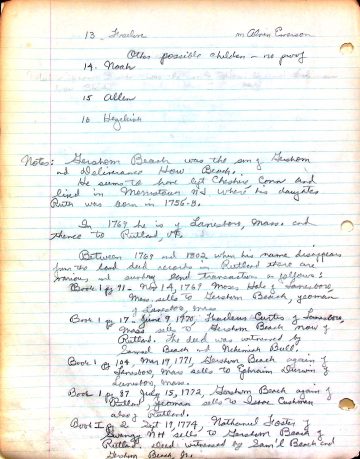 13. m Alvin Emerson
Other possible children - no proof
14. Noah
15 Allen
16 Hezekiah
Notes: Gershom Beach was the son of Gershom
and Deliverance How Beach.
He seems to have left Cheshire, Conn and
lived in Morristown NJ where his daughter
Ruth was born in 1756-8.
In 1769 he is of Lanesboro, Mass. and
thence to Rutland, Vt.
Between 1769 and 1802 when his name disappears
from the land deed records in Rutland there are
various and sundry land transactions as follows:
Book 1 pg 91 - Nov 14, 1769 Moses Hale of Lanesboro,
Mass. sells to Gershom Beach, yeoman
of Lanesboro, Mass
Book 1 pg 17 - June 9, 1770, Curtis of Lanesboro,
Mass sells to Gershom Beach now of
Rutland. The deed was witnessed by
Samuel Beach and Nehemiah Bull.
Book 1 pg 104 Mar 19, 1771, Gershom Beach again of
Lanesboro, Mass sells to Ephraim of
Lanesboro, Mass.
Book 1 pg 87 July 15, 1772, Gershom Beach again of
Rutland, yeoman sells to Isaac Cushman
also of Rutland.
Book 1 pg 2 Sept 19, 1774, Nathaniel Foster of
Swanzey NH sells to Gershom Beach of
Rutland. Deed witnessed by Sam'l Beach and
Gershom Beach, Jr.